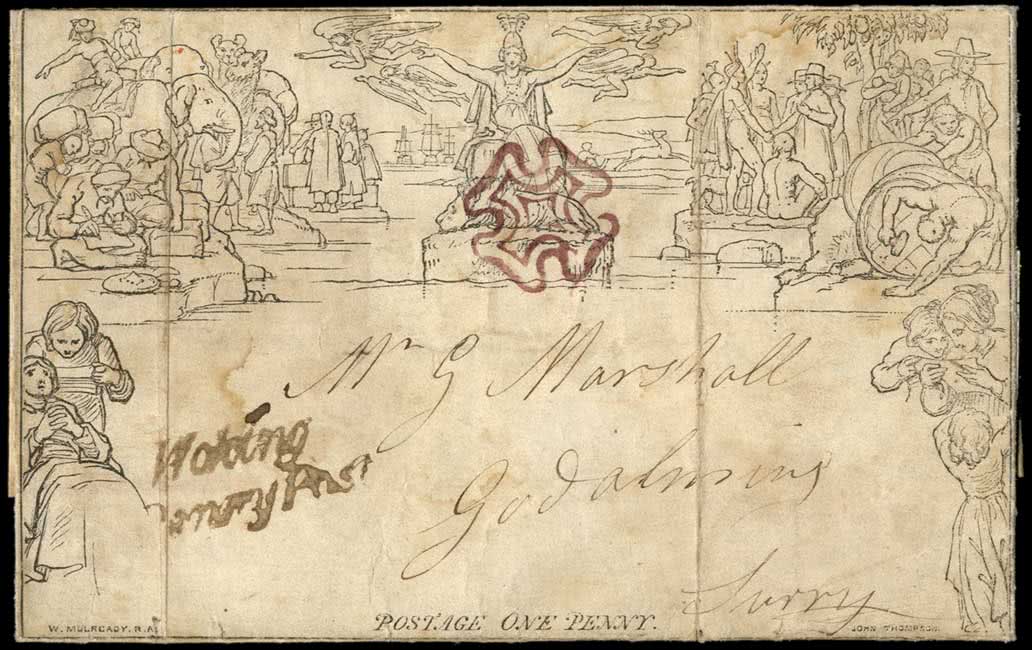 Mr G Marshall
Woking
Penny Post
Godalming
Surry
POSTAGE ONE PENNY.
W. MULREADY, R.A.
JOHN THOMPSON